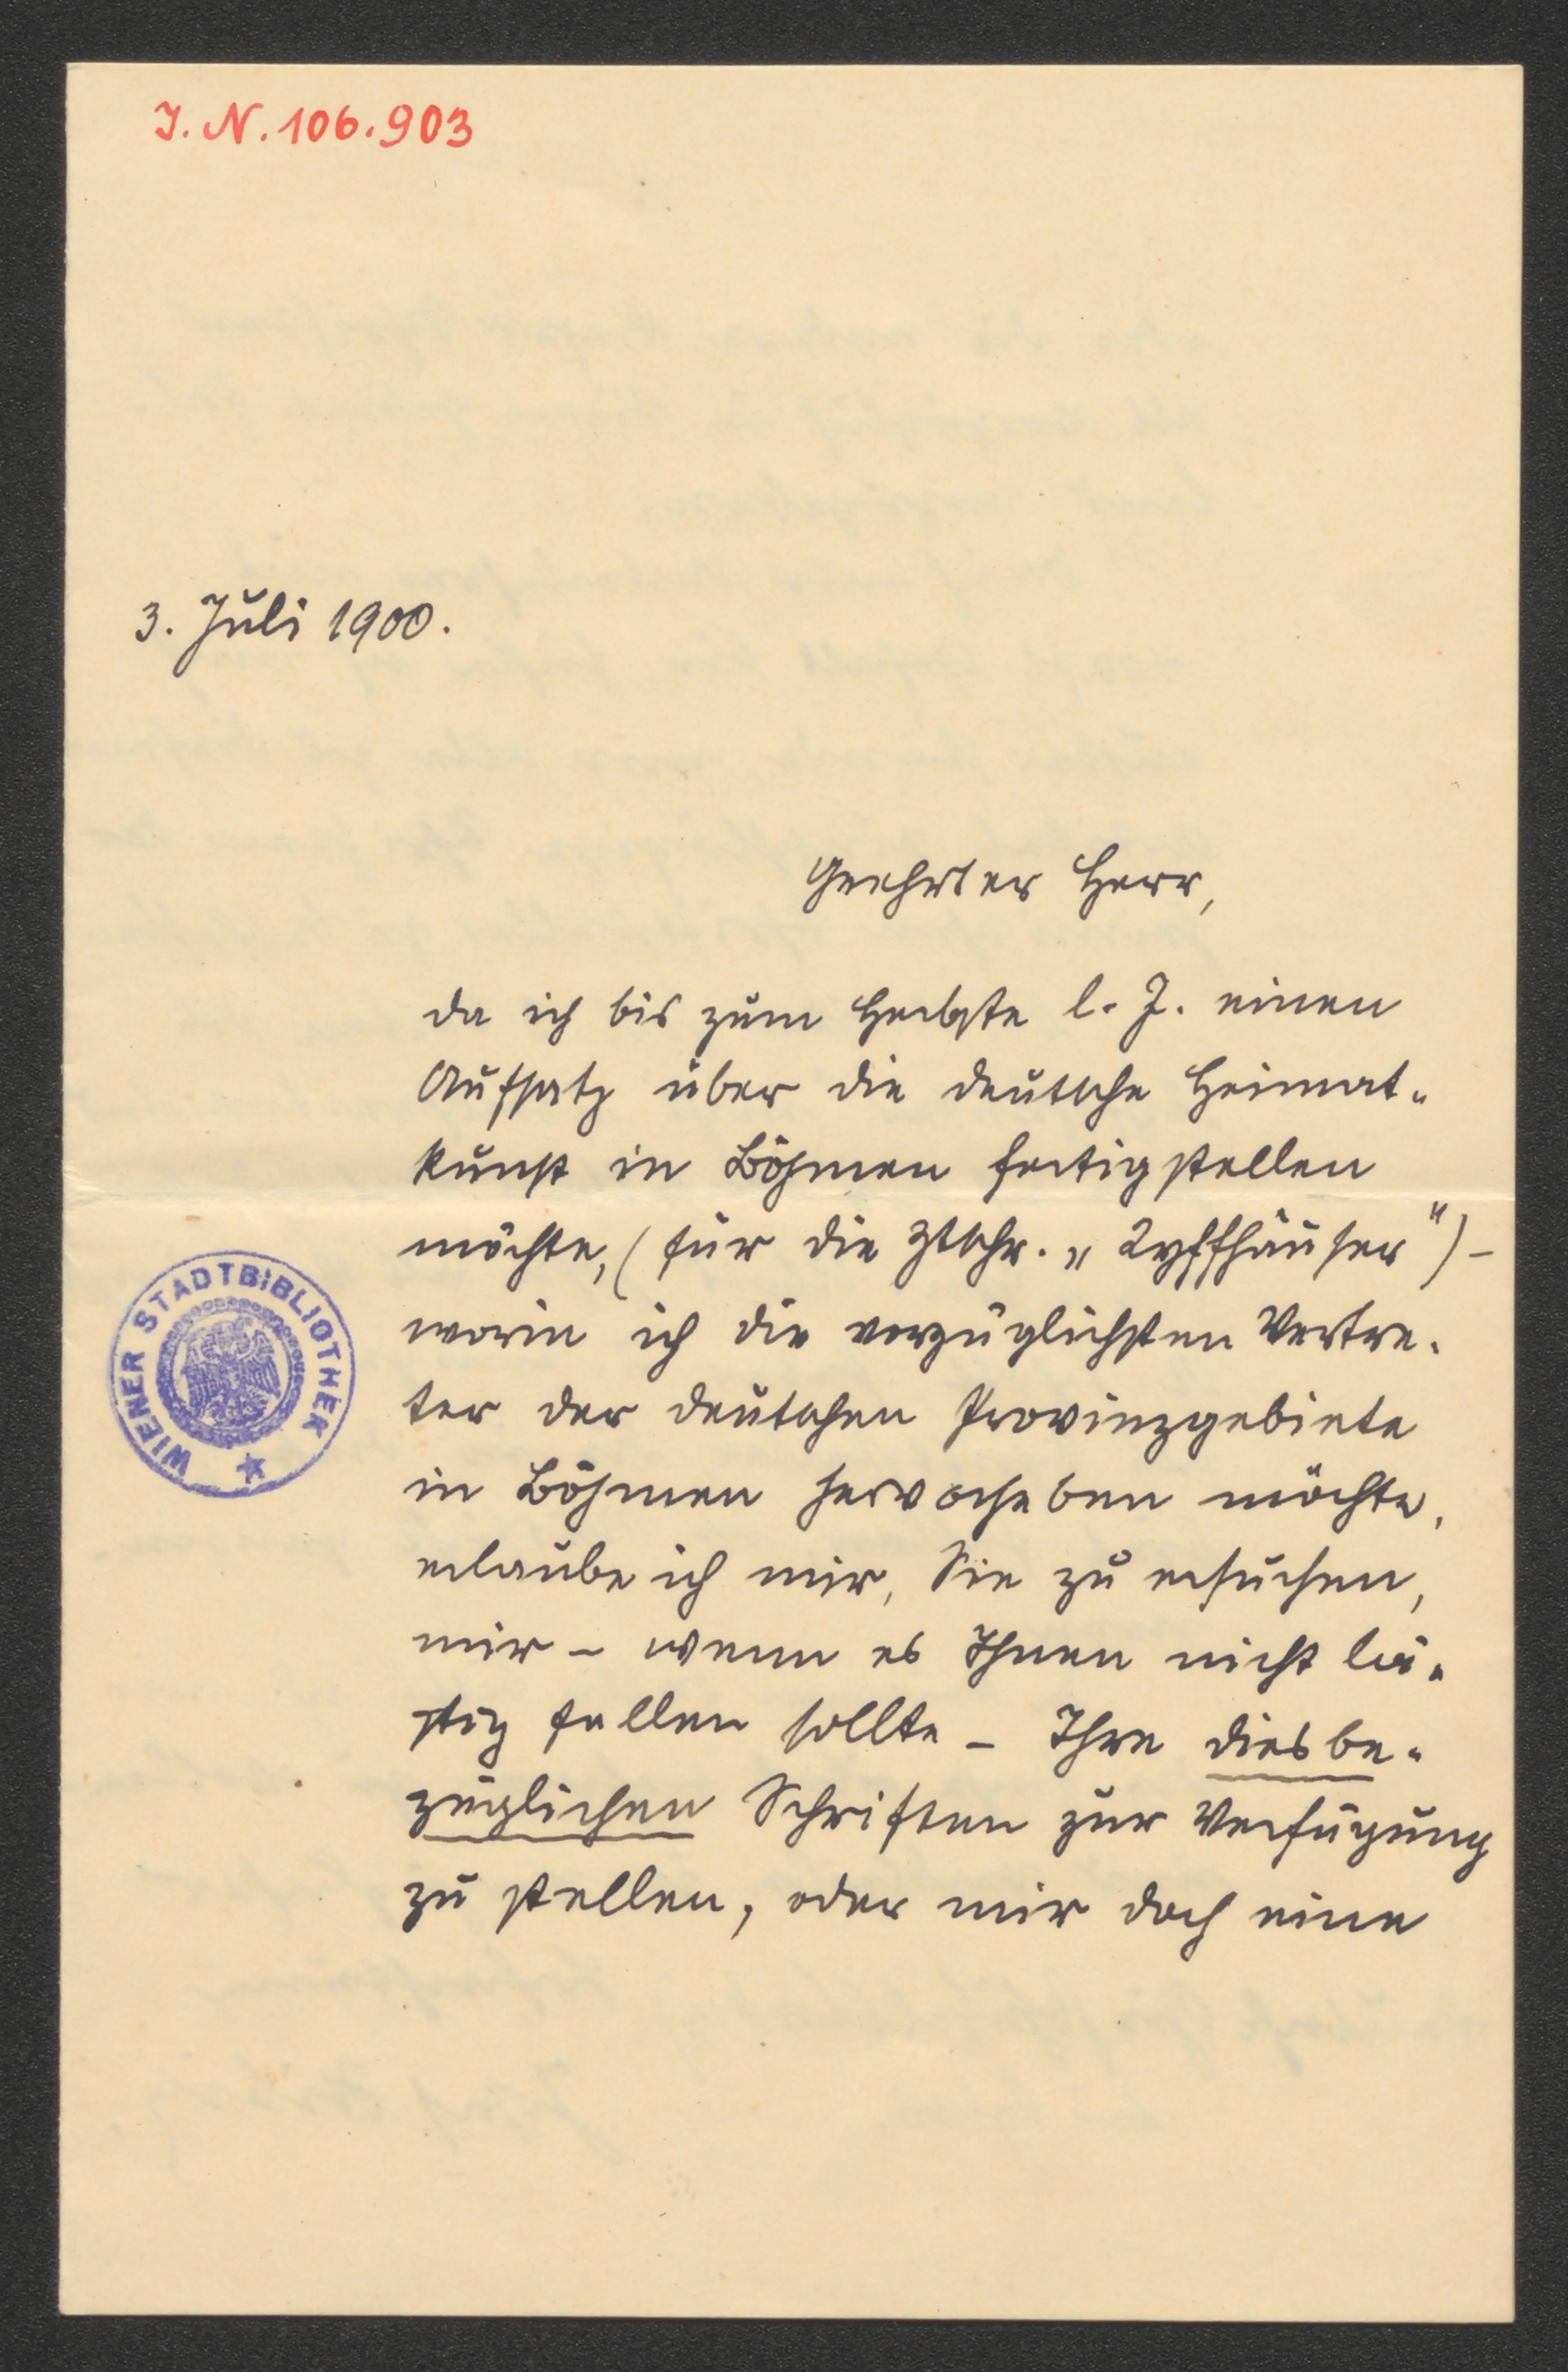 J. N. 106.903
3. Juli 1900.
Geehrter Herr,
da ich bis zum Herbste l. J. einen
Aufsatz über die deutsche Heimat-
kunst in Böhmen fertigstellen
möchte, (für die Ztschr. „Kyffhäuser") –
worin ich die vorzüglichsten Vertre-
ter der deutschen Provinzgebiete
in Böhmen hervorheben möchte,
erlaube ich mir, Sie zu ersuchen,
mir – wenn es Ihnen nicht lä-
stig fallen sollte – Ihre diesbe-
züglichen Schriften zur Verfügung
zu stellen, oder mir doch eine
WIENER STADTBIBLIOTHEK